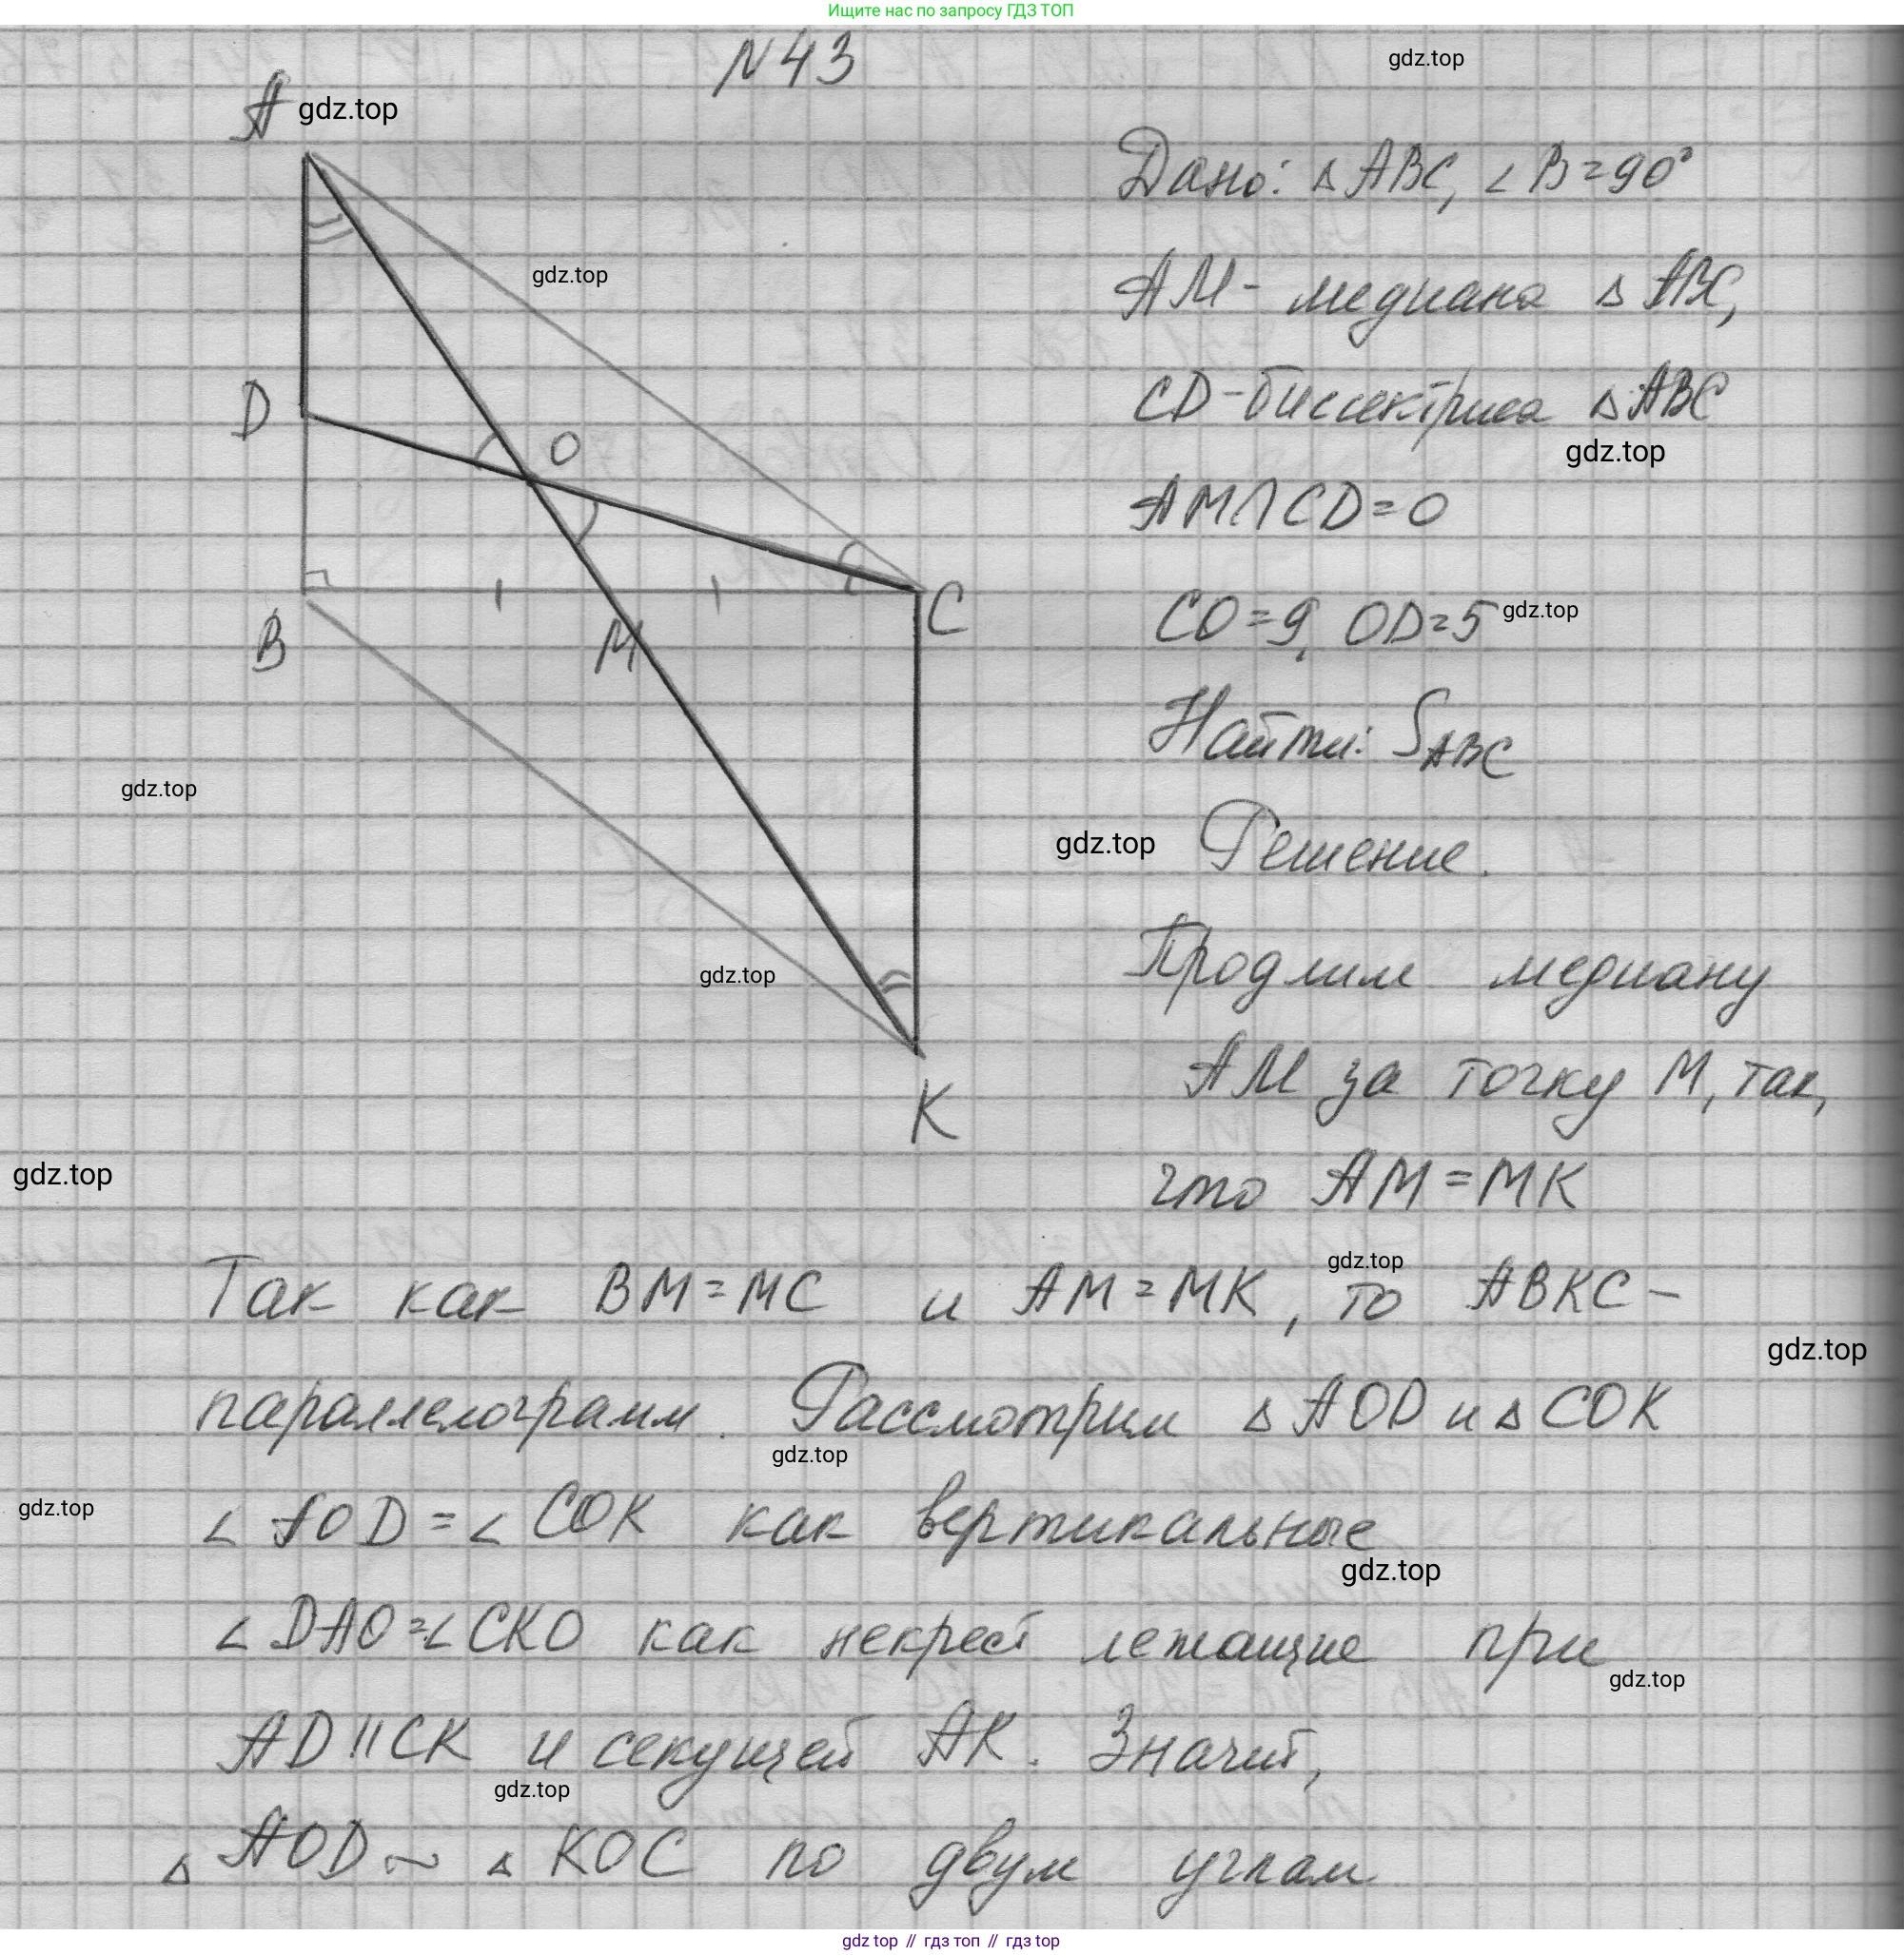 Ищите нас по запросу ГДЗ ТОП
N43
gdz.top
A gdz.top
Дано: △ABC, ∠B=90°
gdz.top
AM- медиана △ABC,
D
O
CD-биссектриса △ABC
gdz.top
AM∩CD=O
B
M
C
CO=9, OD=5 gdz.top
Найти: S ABC
gdz.top
gdz.top Решение.
gdz.top
Продлим медиану
K
AM за точку M, так,
gdz.top
что AM=MK
gdz.top
Так как BM=MC и AM=MK, то ABKC-
gdz.top
параллелограмм. Рассмотрим △AOD и △COK
gdz.top
gdz.top
∠AOD=∠COK как вертикальные
gdz.top
∠DAO=∠CKO как некрест лежащие при
gdz.top
AD||CK и секущей AK. Значит,
gdz.top
△AOD ~ △KOC по двум углам
gdz top // гдз топ // гдз top